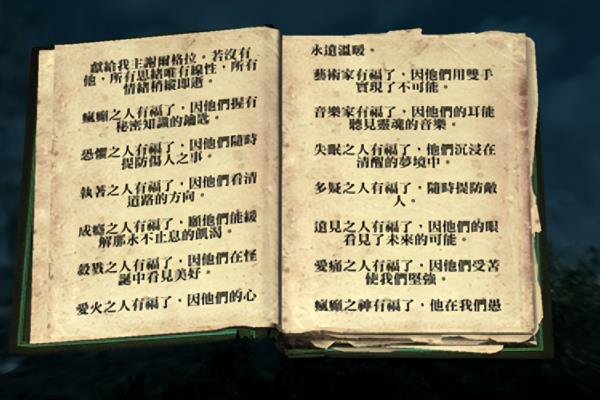 獻給我主謝爾格拉。若沒有
他，所有思緒唯有線性，所有
情緒稍縱即逝。
瘋癲之人有福了，因他們握有
秘密知識的鑰匙。
恐懼之人有福了，因他們隨時
提防傷人之事。
執著之人有福了，因他們看清
道路的方向。
成癮之人有福了，願他們能緩
解那永不止息的飢渴。
殺戮之人有福了，因他們在怪
誕中看見美好。
愛火之人有福了，因他們的心
永遠溫暖。
藝術家有福了，因他們用雙手
實現了不可能。
音樂家有福了，因他們的耳能
聽見靈魂的音樂。
失眠之人有福了，他們沉浸在
清醒的夢境中。
多疑之人有福了，隨時提防敵
人。
遠見之人有福了，因他們的眼
看見了未來的可能。
愛痛之人有福了，因他們受苦
使我們堅強。
瘋癲之神有福了，他在我們愚